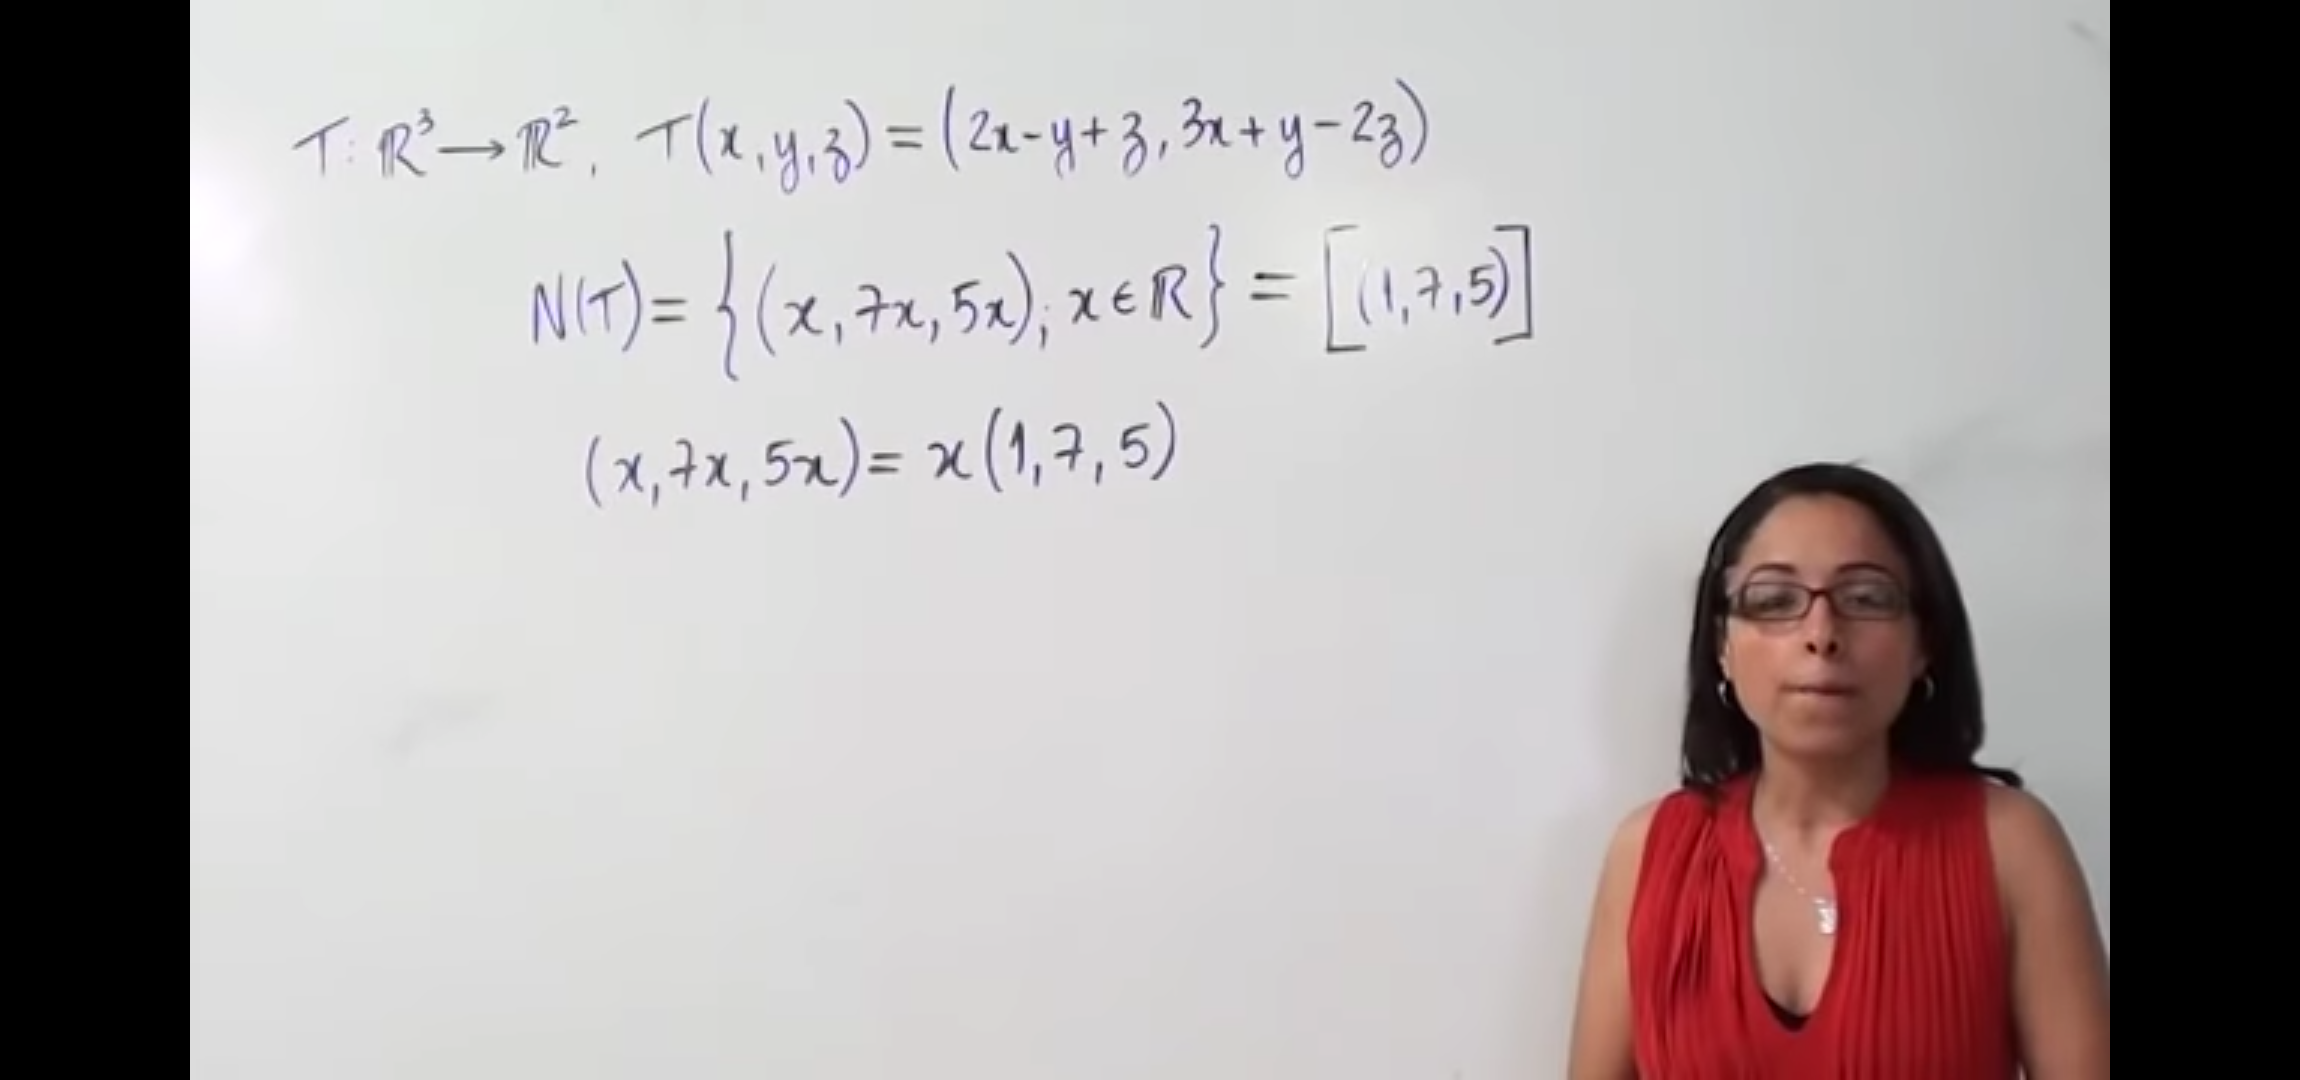 T: ℝ³ → ℝ², T(x,y,z) = (2x-y+z, 3x+y-2z)
N(T) = {(x, 7x, 5x); x ∈ ℝ} = [(1,7,5)]
(x, 7x, 5x) = x(1, 7, 5)